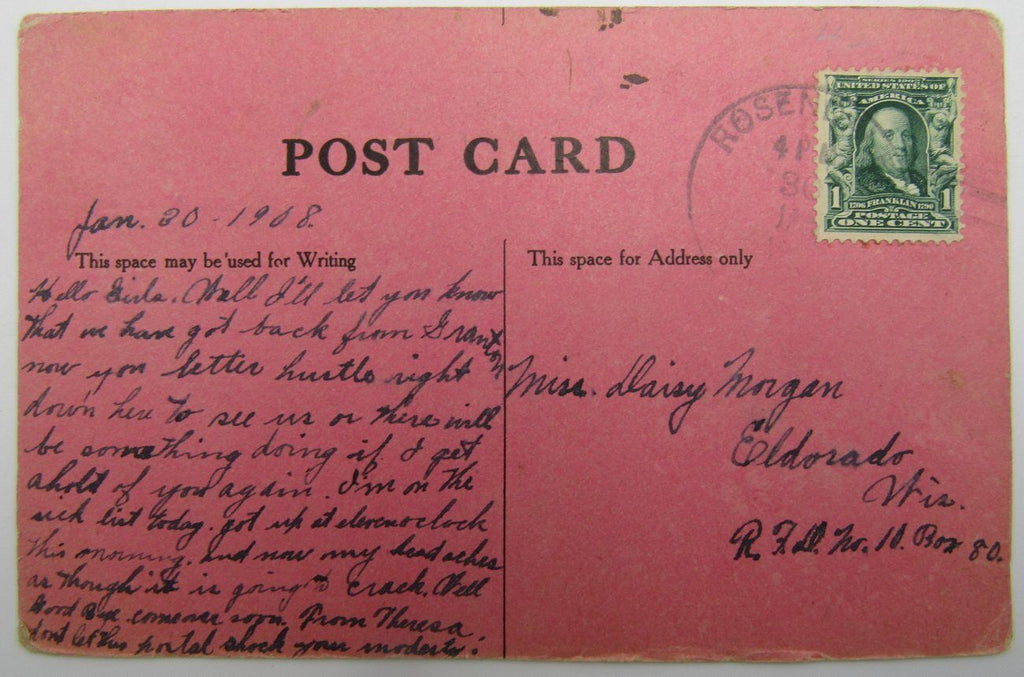 POST CARD
ROSEN
4 P
30
SERIES 1902
UNITED STATES OF
AMERICA
1 1
1706 FRANKLIN 1790
POSTAGE
ONE CENT
Jan. 30 - 1908.
This space may be used for Writing
Hello Girls. Well I'll let you know
that we have got back from Granton
now you better hustle right
down here to see us or there will
be something doing if I get
ahold of you again. I'm on the
sick list today. got up at eleven oclock
this morning. and now my head aches
as though it is going to crack. Well
Good Bye. come over soon. From Theresa.
dont let this postal shock your modesty.
This space for Address only
Miss. Daisy Morgan
Eldorado
Wis.
R. F. D. No. 10. Box 80.